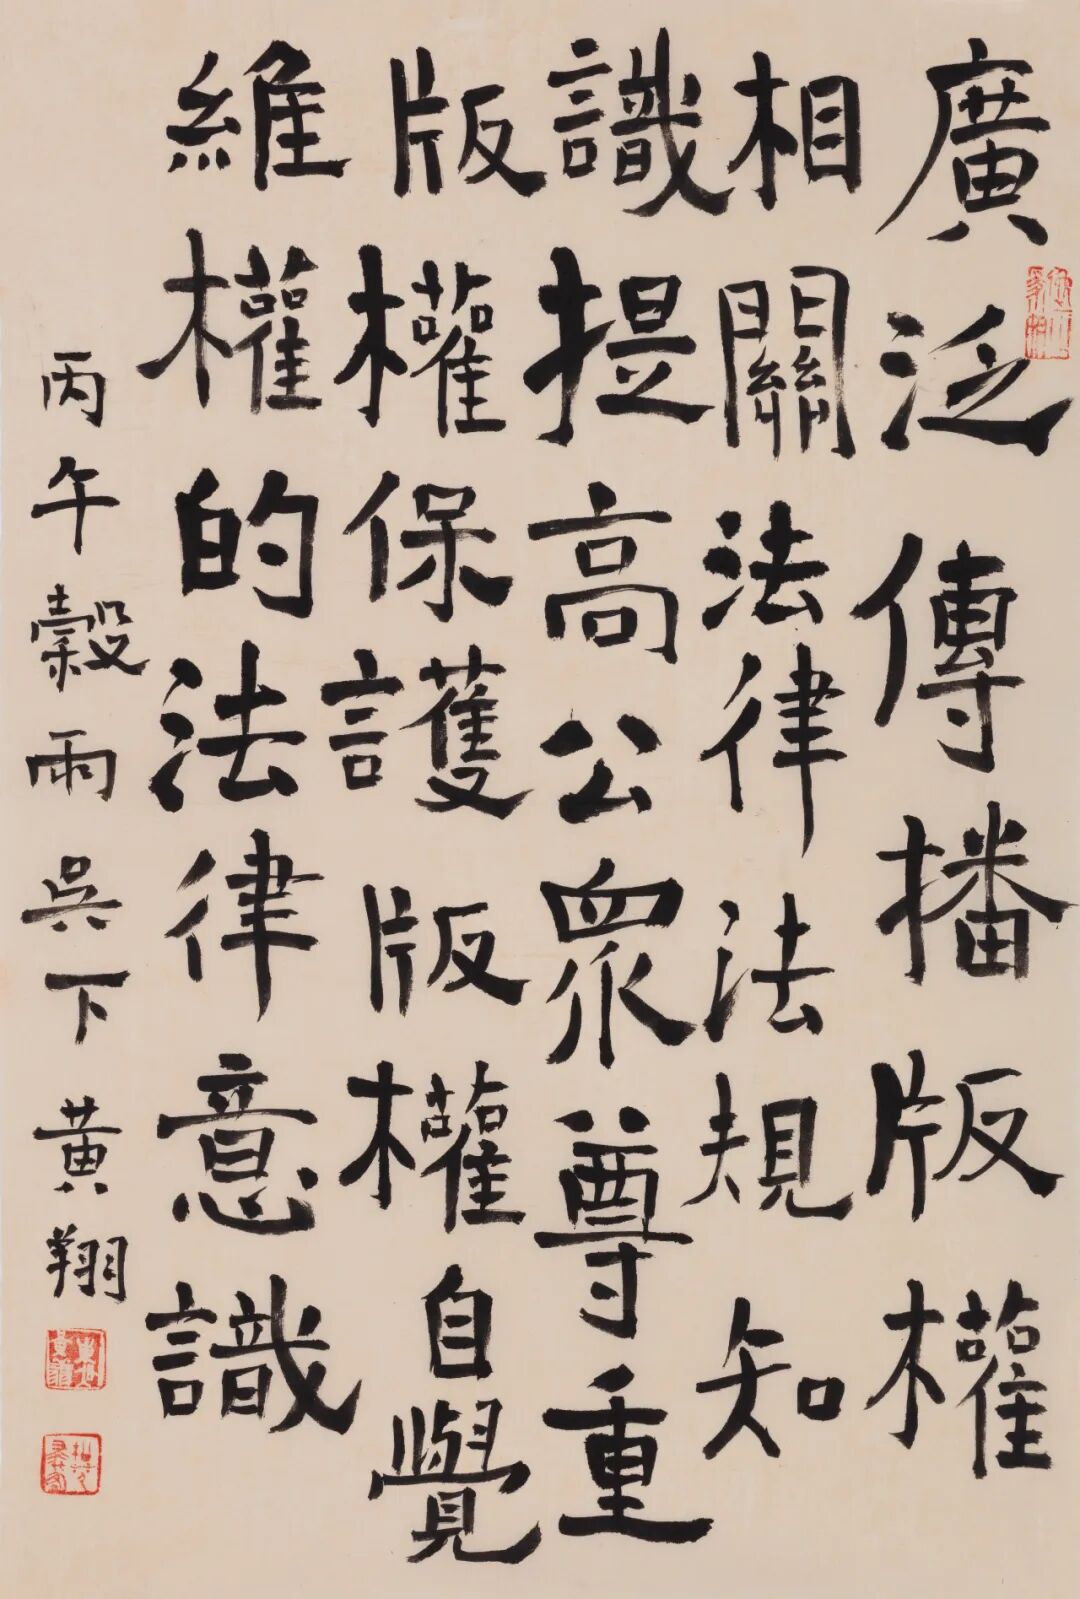 廣泛傳播版權
相關法律法規知
識提高公眾尊重
版權保護版權自覺
維權的法律意識
丙午穀雨吳下黃翔